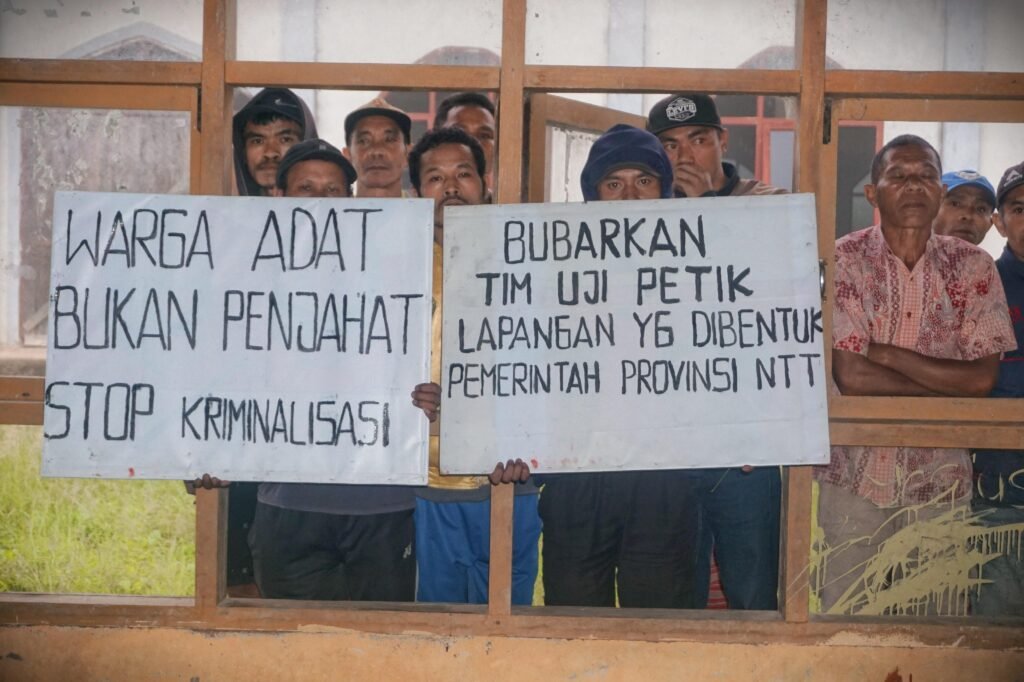 WARGA ADAT
BUKAN PENJAHAT
STOP KRIMINALISASI
BUBARKAN
TIM UJI PETIK
LAPANGAN YG DIBENTUK
PEMERINTAH PROVINSI NTT